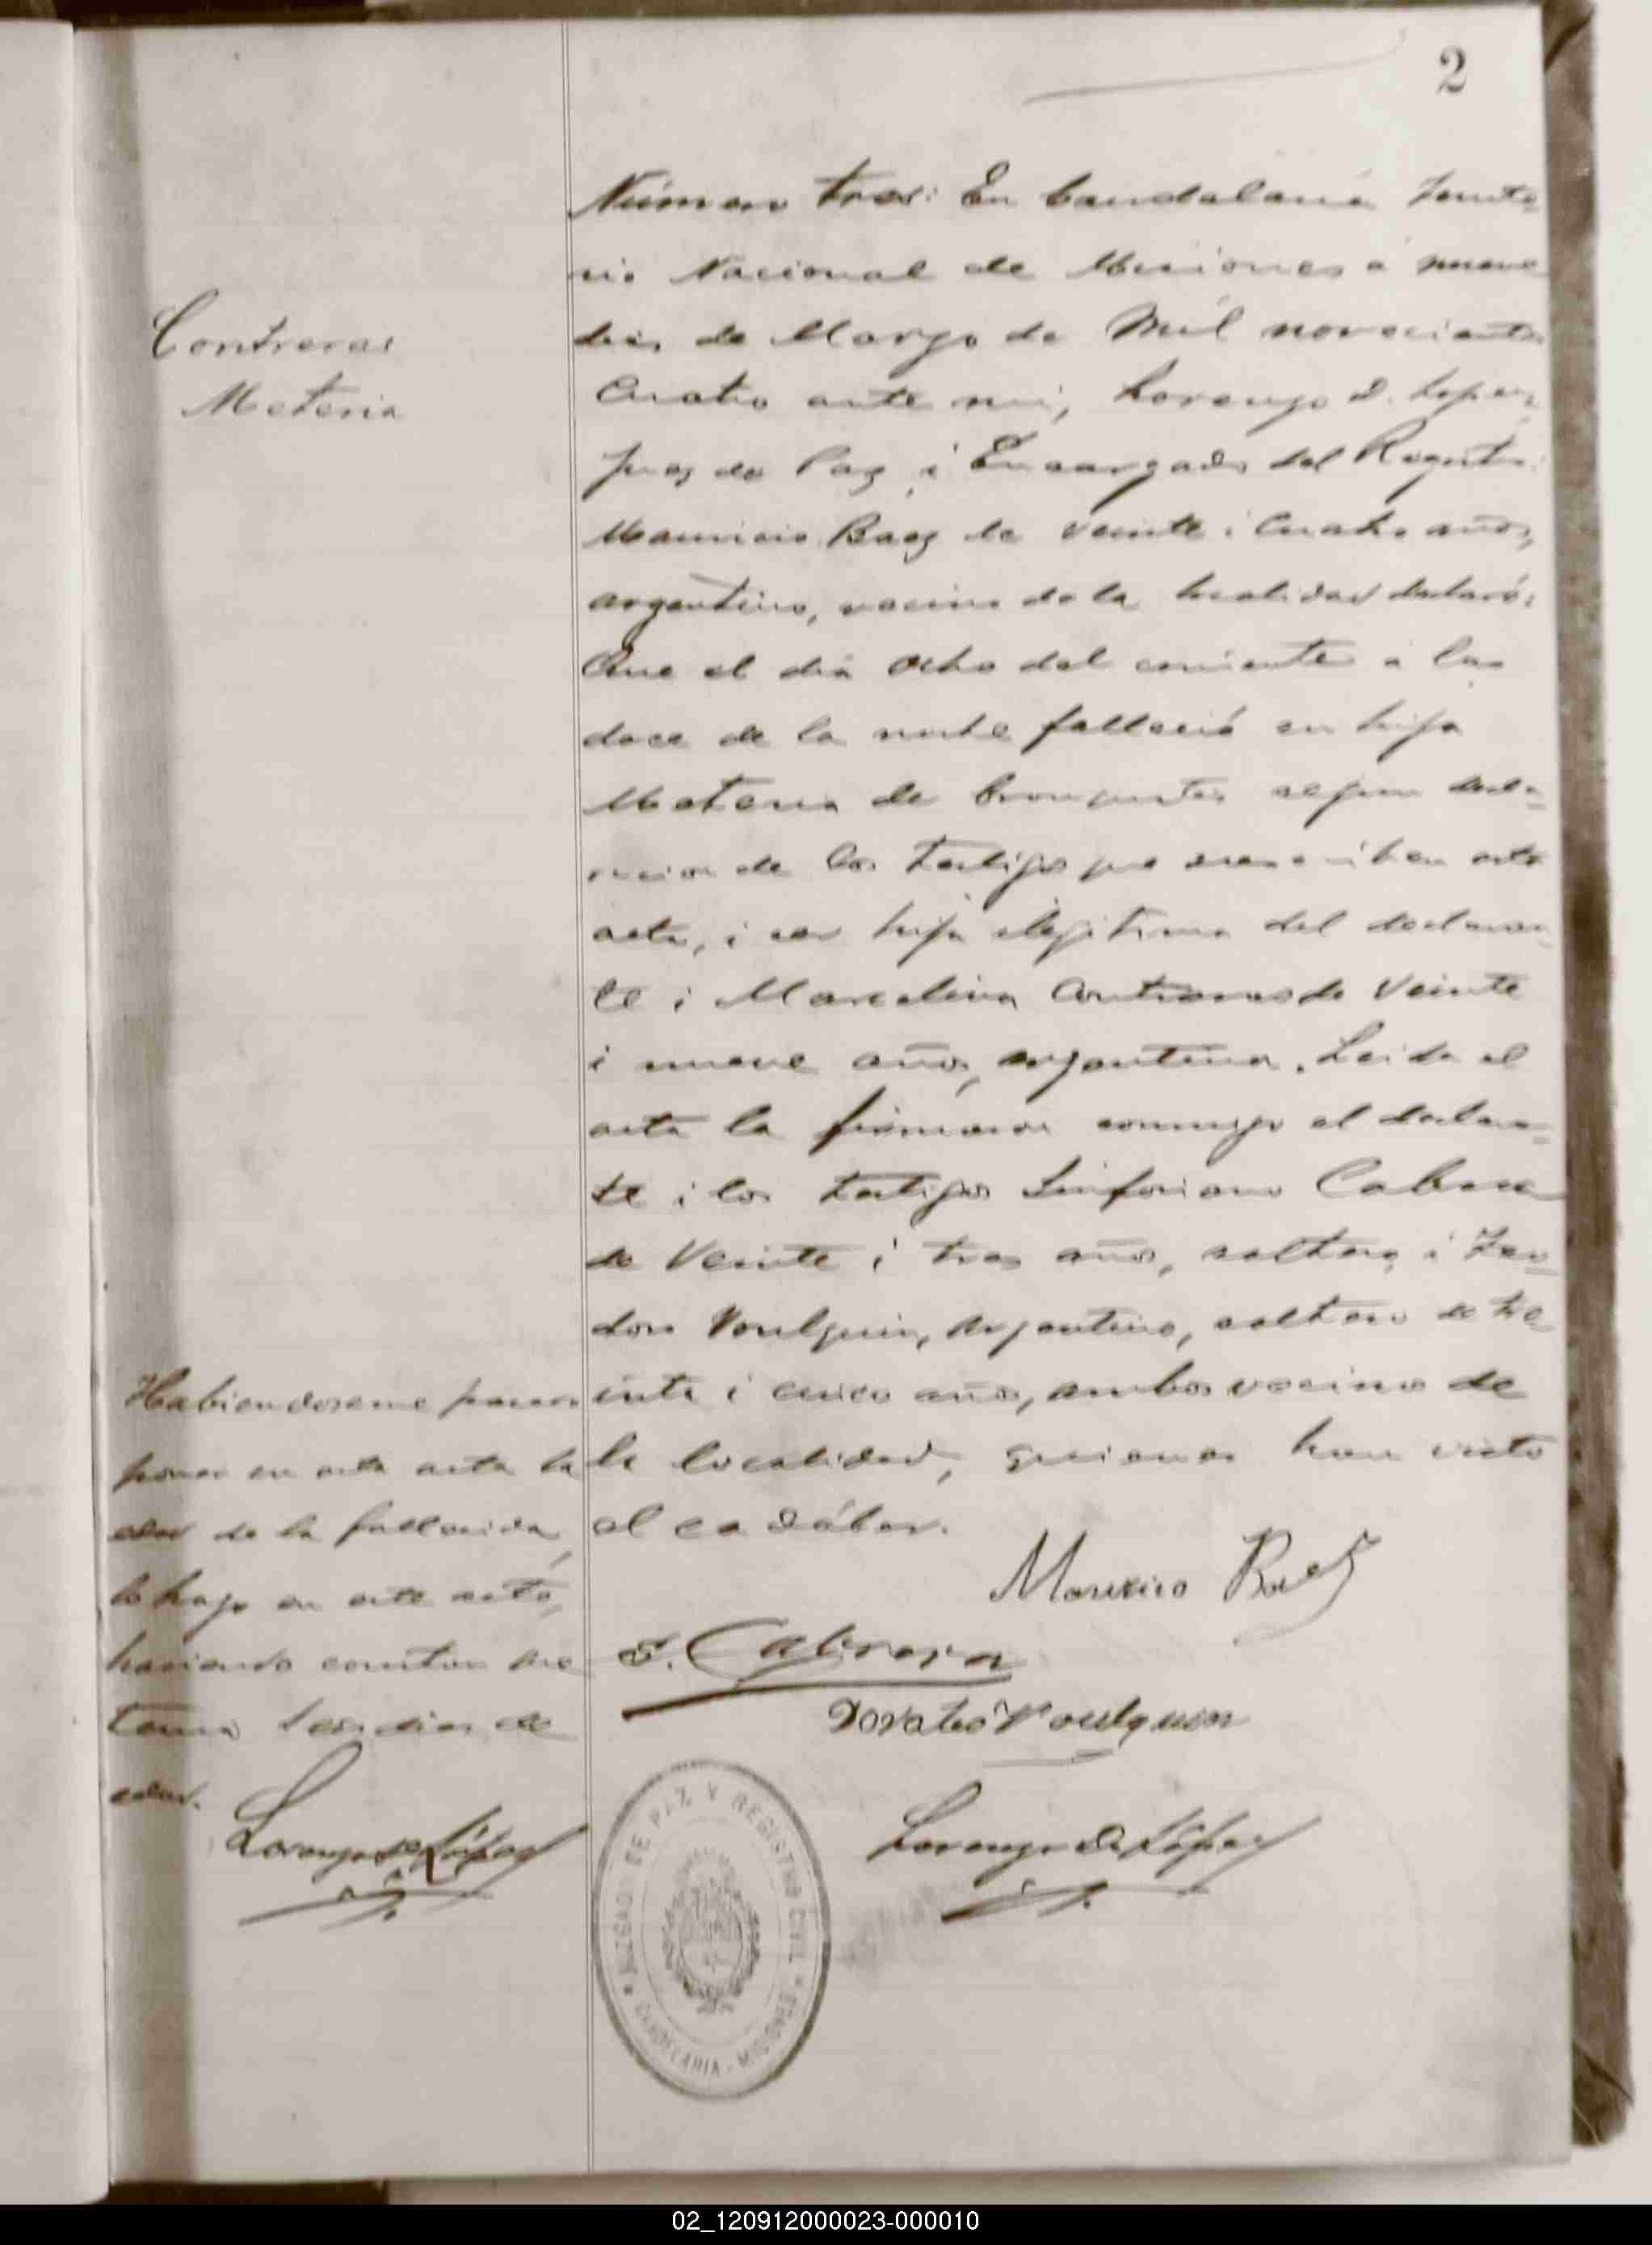 2
Número tres: En Candelaria Territo-
rio Nacional de Misiones a nueve
dias de Marzo de Mil novecientos
Cuatro ante mi, Lorenzo D. Lopez,
Juez de Paz i Encargado del Registro:
Mauricio Baez de veinte i cuatro años,
argentino, vecino de la localidad declaró:
Que el dia ocho del corriente a las
doce de la noche falleció su hija
Meteria de segun decla-
racion de los testigos que suscriben esta
acta, i ser hija ilegitima del declaran-
te i Marcelina Contreras de Veinte
i nueve años, argentina. Leida el
acta la firmaron conmigo el declaran-
te i los testigos Sinforiano Cabrera
de Veinte i tres años, soltero, i
Voulquin, Argentino, soltero de tre-
inta i cinco años, ambos vecinos de
la localidad, quienes han visto
el cadáber.
Contreras
Meteria
Habiendoseme
poner en esta acta la
edad de la fallecida,
lo hago en este acto,
haciendo constar que
tenia dias de
edad.
Lorenzo D. López
Mauricio Baez
S. Cabrera
Voulquin
Lorenzo D. López
JUZGADO DE PAZ Y REGISTRO CIVIL
CANDELARIA - MISIONES
02_120912000023-000010